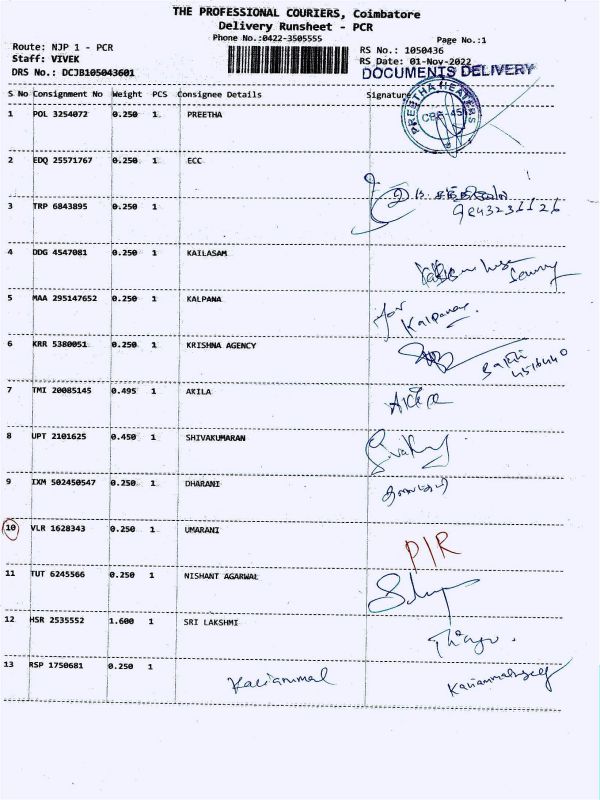 THE PROFESSIONAL COURIERS, Coimbatore
Delivery Runsheet - PCR
Phone No.:0422-3505555
Page No.:1
Route: NJP 1 - PCR
Staff: VIVEK
DRS No.: DCJB105043601
RS No.: 1050436
RS Date: 01-Nov-2022
DOCUMENTS DELIVERY
S No Consignment No Weight PCS Consignee Details Signature
PREETHA HEATERS
1 POL 3254072 0.250 1 PREETHA
2 EDQ 25571767 0.250 1 ECC
3 TRP 6843895 0.250 1
9843231126
4 DDG 4547081 0.250 1 KAILASAM
5 MAA 295147652 0.250 1 KALPANA
for Kalpana
6 KRR 5380051 0.250 1 KRISHNA AGENCY
7 TMI 20085145 0.495 1 AKILA
Akila
8 UPT 2101625 0.450 1 SHIVAKUMARAN
9 IXM 502450547 0.250 1 DHARANI
10 VLR 1628343 0.250 1 UMARANI
P/R
11 TUT 6245566 0.250 1 NISHANT AGARWAL
12 HSR 2535552 1.600 1 SRI LAKSHMI
13 RSP 1750681 0.250 1 Kaliammal